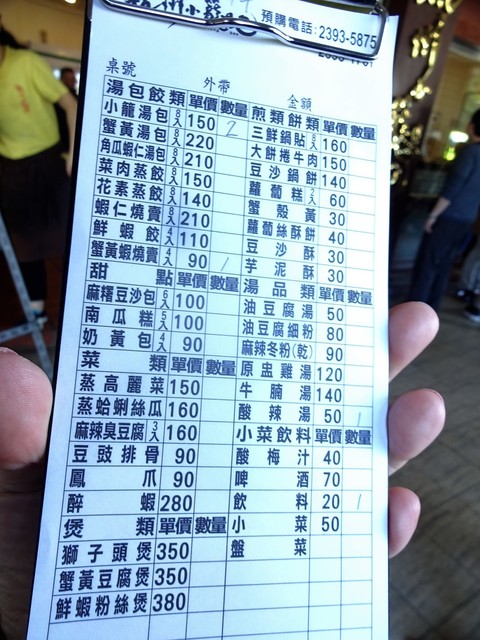 預購電話:2393-5875
桌號
外帶
金額
湯包餃類 單價 數量
小籠湯包 8入 150 2
蟹黃湯包 8入 220
角瓜蝦仁湯包 8入 210
菜肉蒸餃 8入 150
花素蒸餃 8入 140
蝦仁燒賣 8入 210
鮮蝦餃 4入 110
蟹黃蝦燒賣 4入 90 1
甜點 單價 數量
麻糬豆沙包 6入 100
南瓜糕 5入 100
奶黃包 4入 90
菜類 單價 數量
蒸高麗菜 150
蒸蛤蜊絲瓜 160
麻辣臭豆腐 3入 160
豆豉排骨 90
鳳爪 90
醉蝦 280
煲類 單價 數量
獅子頭煲 350
蟹黃豆腐煲 350
鮮蝦粉絲煲 380
煎類餅類 單價 數量
三鮮鍋貼 8入 160
大餅捲牛肉 150
豆沙鍋餅 140
蘿蔔糕 2入 60
蟹殼黃 30
蘿蔔絲酥餅 40
豆沙酥 30
芋泥酥 30
湯品類 單價 數量
油豆腐湯 50
油豆腐細粉 80
麻辣冬粉(乾) 90
原盅雞湯 120
牛腩湯 140
酸辣湯 50 1
小菜飲料 單價 數量
酸梅汁 40
啤酒 70
飲料 20 1
小菜 50
盤菜